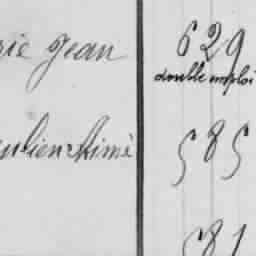 rie Jean 629
double emploi
ulien Aimé 585
81